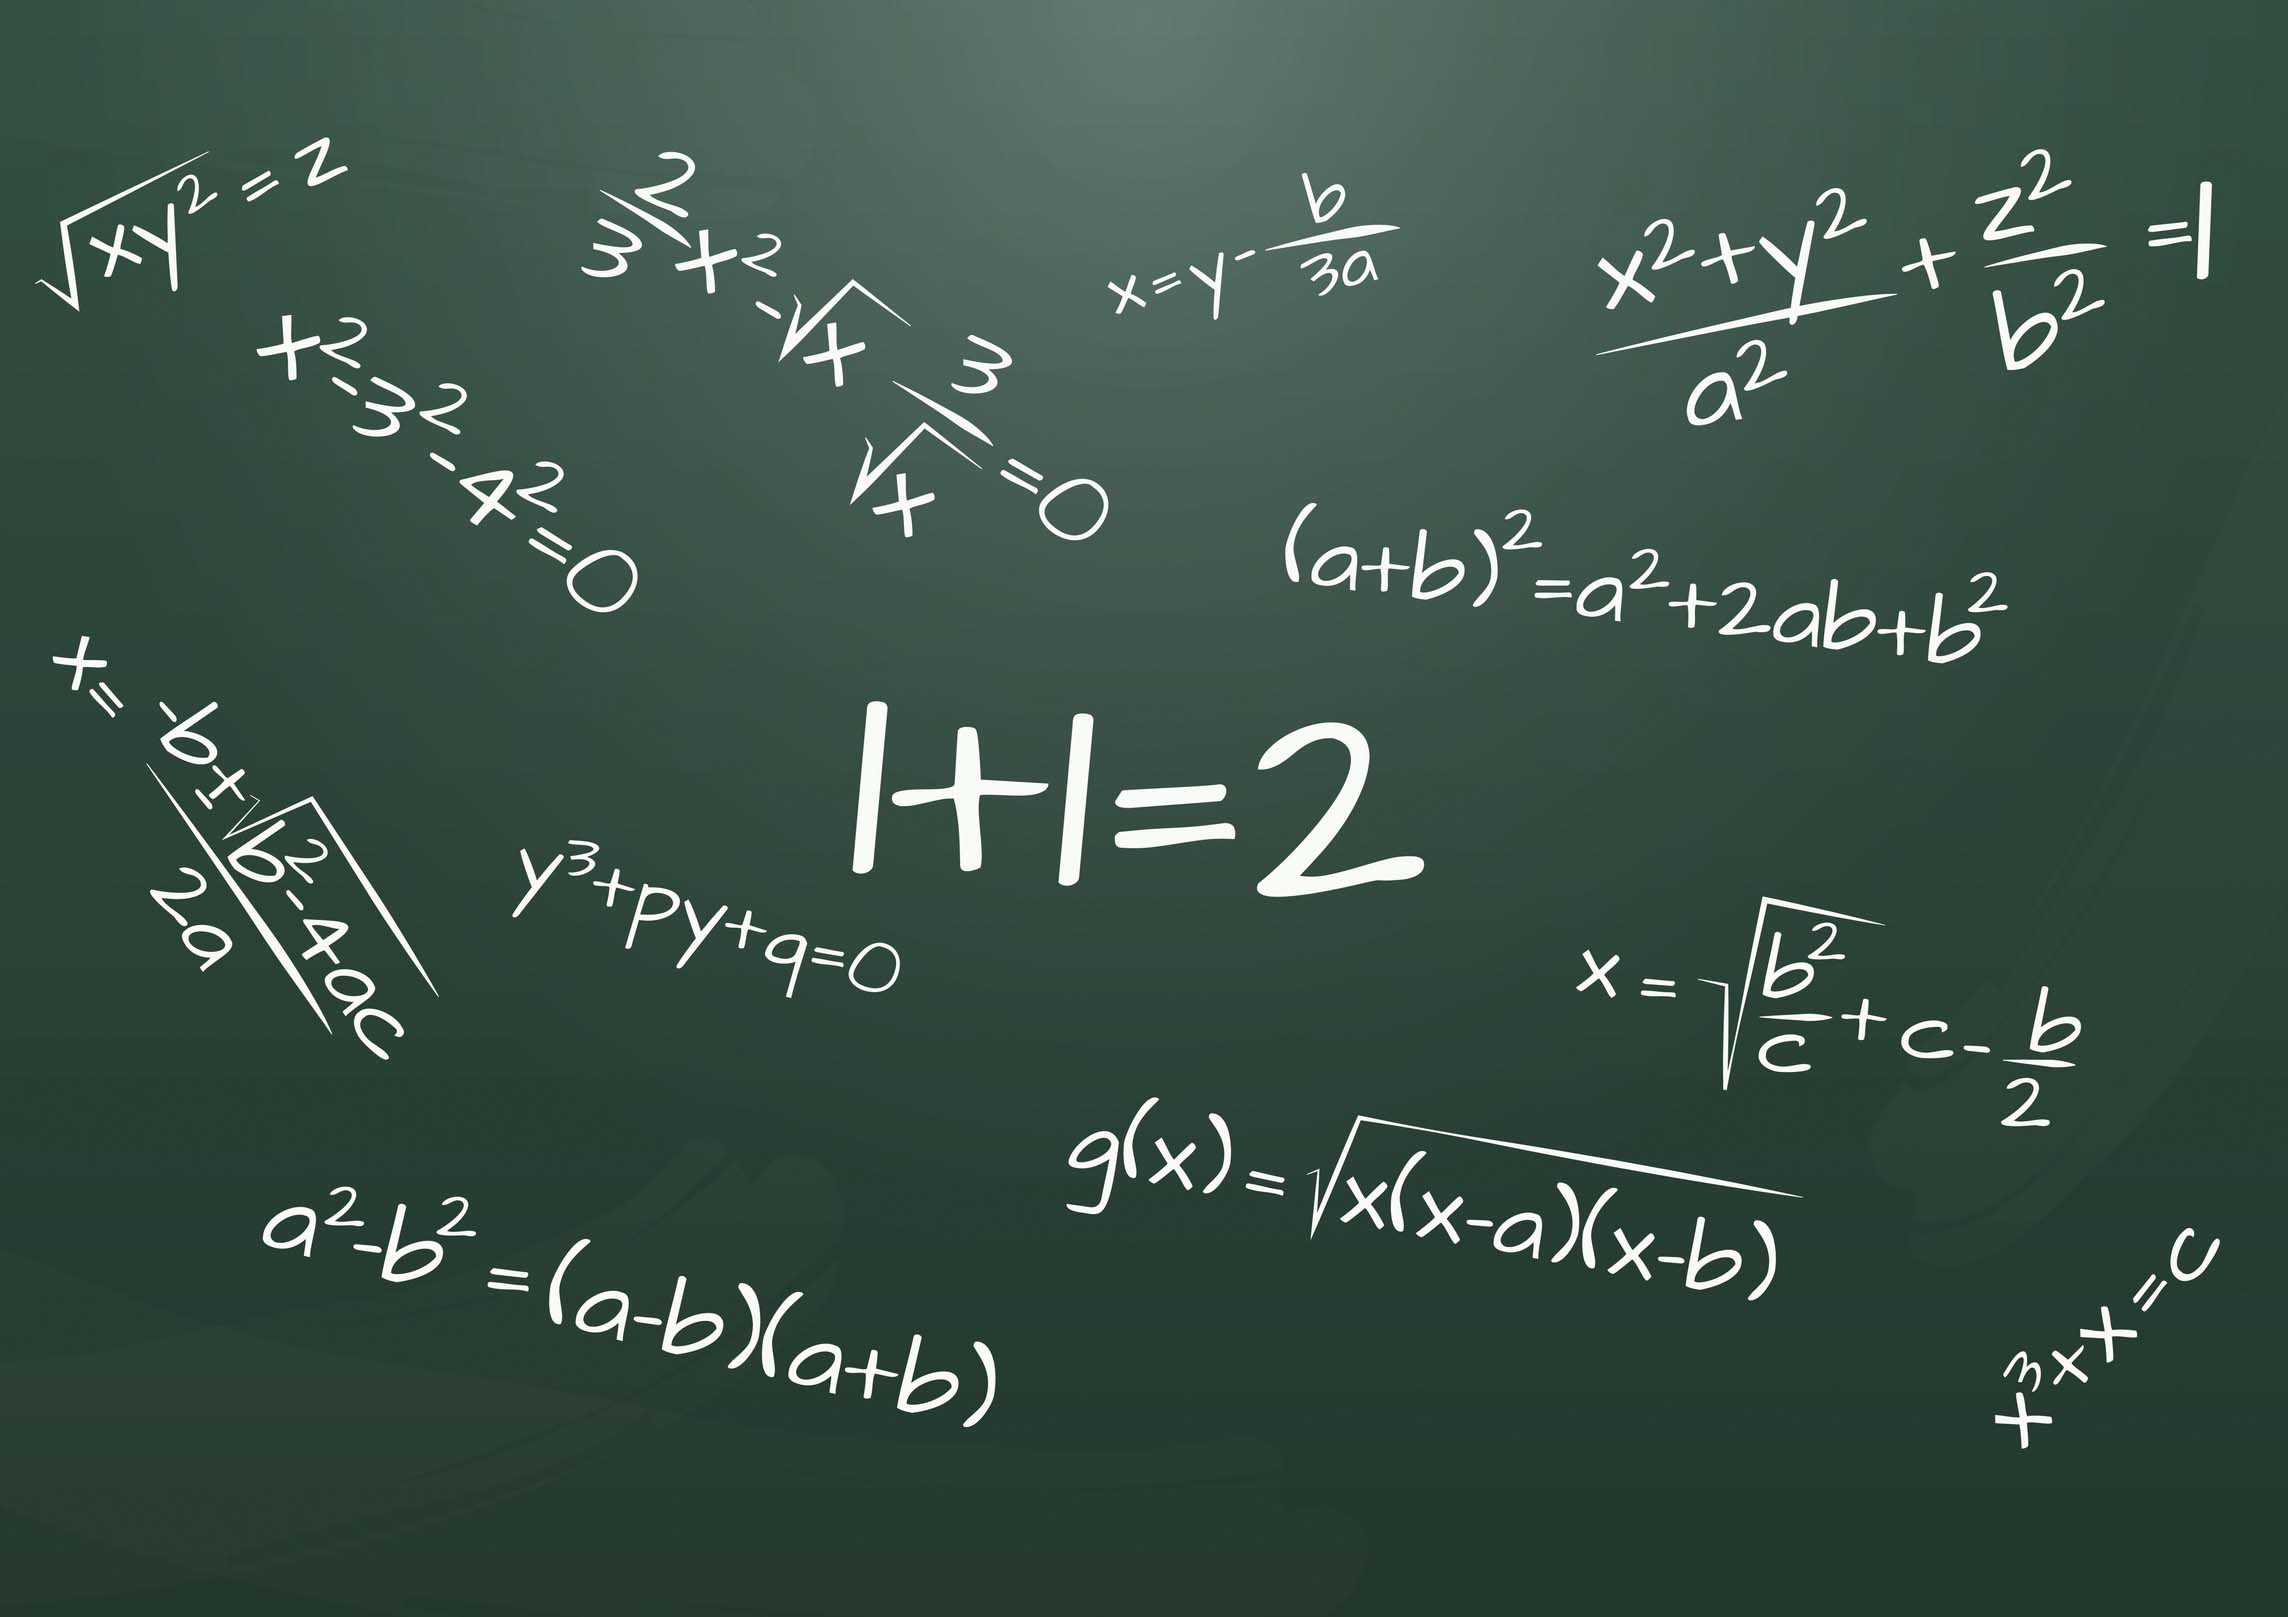 √xy² = z
2/3 x² - √x 3/√x = 0
x = y - b/3a
x² + y² / a² + z²/b² = 1
x² - 3² - 4² = 0
(a+b)² = a² + 2ab + b²
x = -b ± √b² - 4ac / 2a
1+1=2
y³ + py + q = 0
x = √b²/c + c - b/2
g(x) = √x(x-a)(x-b)
a² - b² = (a-b)(a+b)
x³ x x = c